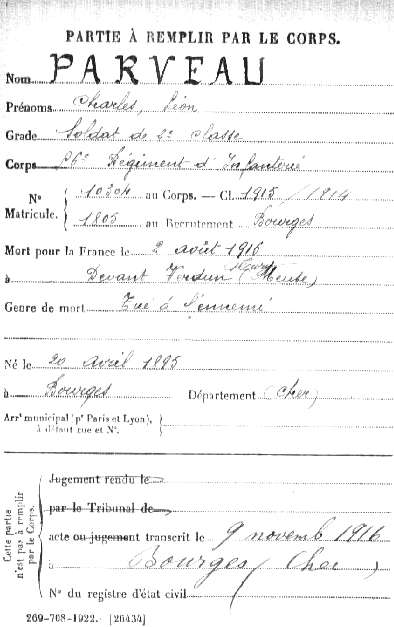 PARTIE À REMPLIR PAR LE CORPS.
Nom PARVEAU
Prénoms Charles, Léon
Grade Soldat de 2e classe
Corps 86e Régiment d'Infanterie
N° Matricule. 10304 au Corps. — Cl. 1915 / 1914
1805 au Recrutement Bourges
Mort pour la France le 2 août 1916
à Devant Verdun (Meuse)
Genre de mort Tué à l'ennemi
Né le 20 avril 1895
à Bourges Département (Cher)
Arrt municipal (pr Paris et Lyon),
à défaut rue et N°.
Cette partie n'est pas à remplir par le Corps.
Jugement rendu le
par le Tribunal de
acte ou jugement transcrit le 9 novemb 1916
à Bourges (Cher)
N° du registre d'état civil
269-708-1922. [26434]